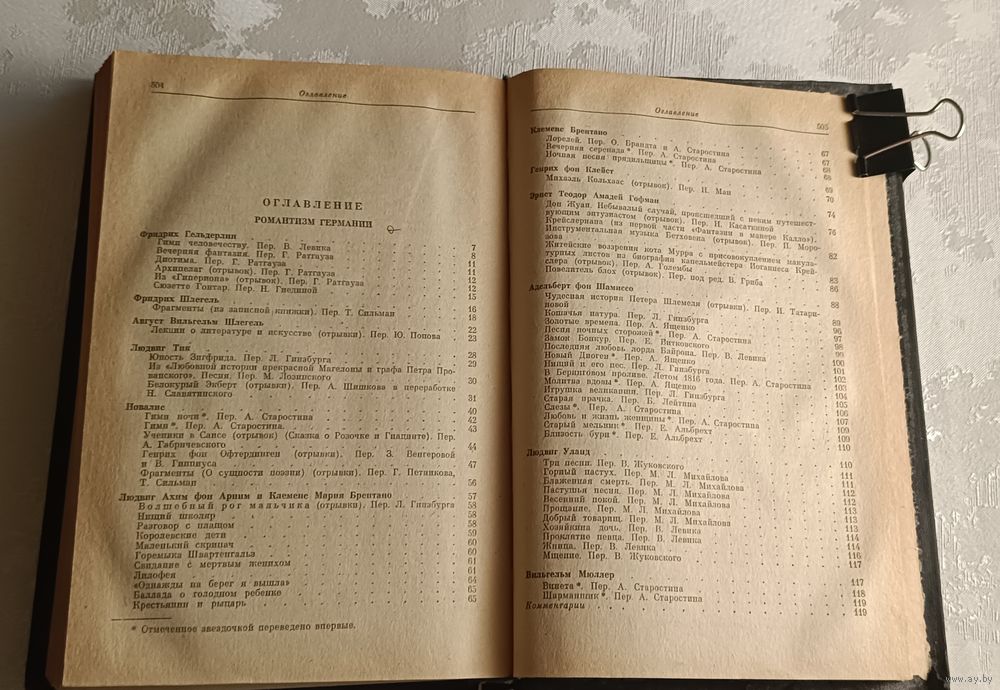 504
Оглавление
ОГЛАВЛЕНИЕ
РОМАНТИЗМ ГЕРМАНИИ
Фридрих Гельдерлин
Гимн человечеству. Пер. В. Левика 7
Вечерняя фантазия. Пер. Г. Ратгауза 8
Диотима. Пер. Г. Ратгауза 11
Архипелаг (отрывок). Пер. Г. Ратгауза 11
Из «Гипериона» (отрывок). Пер. Г. Ратгауза 12
Сюзетто Гонтар. Пер. Н. Гнединой 12
Фридрих Шлегель 15
Фрагменты (из записной книжки). Пер. Т. Сильман 16
Август Вильгельм Шлегель 18
Лекции о литературе и искусстве (отрывки). Пер. Ю. Попова 22
23
Людвиг Тик
Юность Зигфрида. Пер. Л. Гинзбурга 28
Из «Любовной истории прекрасной Магелоны и графа Петра Про- 29
ванского». Песня. Пер. М. Лозинского
Белокурый Экберт (отрывки). Пер. А. Шишкова в переработке 30
Н. Славятинского 31
Новалис 40
Гимн ночи*. Пер. А. Старостина 42
Гимн*. Пер. А. Старостина. 43
Ученики в Саисе (отрывок) (Сказка о Розочке и Гиацинте). Пер.
А. Габричевского 44
Генрих фон Офтердинген (отрывки). Пер. З. Венгеровой
и В. Гиппиуса 47
Фрагменты (О сущности поэзии) (отрывки). Пер. Г. Петникова,
Т. Сильман 56
Людвиг Ахим фон Арним и Клеменс Мария Брентано 57
Волшебный рог мальчика (отрывки). Пер. Л. Гинзбурга 58
Нищий школяр 58
Разговор с плащом 58
Королевские дети 59
Маленький скрипач 60
Горемыка Швартенгальз 60
Свидание с мертвым женихом 61
Лилофея 61
«Однажды на берег я вышла» 64
Баллада о голодном ребенке 65
Крестьянин и рыцарь 65
* Отмеченное звездочкой переведено впервые.
Оглавление
505
Клеменс Брентано
Лорелей. Пер. О. Брандта и А. Старостина 67
Вечерняя серенада*. Пер. А. Старостина 67
Ночная песня прядильщицы*. Пер. А. Старостина 68
Генрих фон Клейст 68
Михаэль Кольхаас (отрывок). Пер. Н. Ман 69
Эрнст Теодор Амадей Гофман 70
Дон Жуан. Небывалый случай, происшедший с неким путешест- 74
вующим энтузиастом (отрывок). Пер. И. Касаткиной
Крейслериана (из первой части «Фантазии в манере Калло»). 76
Инструментальная музыка Бетховена (отрывок). Пер. П. Моро-
зова
Житейские воззрения кота Мурра с присовокуплением макула- 82
турных листов из биографии капельмейстера Иоганнеса Крей-
слера (отрывок). Пер. А. Голембы
Повелитель блох (отрывок). Пер. под ред. В. Гриба 83
Адельберт фон Шамиссо 86
Чудесная история Петера Шлемеля (отрывки). Пер. И. Татари- 88
новой
Кошачья натура. Пер. Л. Гинзбурга 89
Золотые времена. Пер. А. Ященко 96
Песня ночных сторожей*. Пер. А. Старостина 97
Замок Бонкур. Пер. Е. Витковского 98
Последняя любовь лорда Байрона. Пер. В. Левика 99
Новый Диоген*. Пер. А. Ященко 100
Нищий и его пес. Пер. Л. Гинзбурга 101
В Беринговом проливе. Летом 1816 года. Пер. А. Старостина 102
Молитва вдовы*. Пер. А. Ященко 103
Игрушка великанши. Пер. Л. Гинзбурга 104
Старая прачка. Пер. Б. Лейтина 105
Слезы*. Пер. А. Старостина 106
Любовь и жизнь женщины*. Пер. А. Старостина 107
Старый мельник*. Пер. Е. Альбрехт 109
Близость бури*. Пер. Е. Альбрехт 109
110
Людвиг Уланд
Три песни. Пер. В. Жуковского 110
Горный пастух. Пер. М. Л. Михайлова 111
Блаженная смерть. Пер. М. Л. Михайлова 111
Пастушья песня. Пер. М. Л. Михайлова 112
Весенний покой. Пер. М. Л. Михайлова 112
Прощание. Пер. М. Л. Михайлова 113
Добрый товарищ. Пер. М. Л. Михайлова 113
Хозяйкина дочь. Пер. В. Левика 113
Проклятие певца. Пер. В. Левика 114
Жница. Пер. В. Левика 114
Мщение. Пер. В. Жуковского 116
117
Вильгельм Мюллер
Винета*. Пер. А. Старостина 117
Шарманщик*. Пер. А. Старостина 118
Комментарии 119
119
www.ay.by